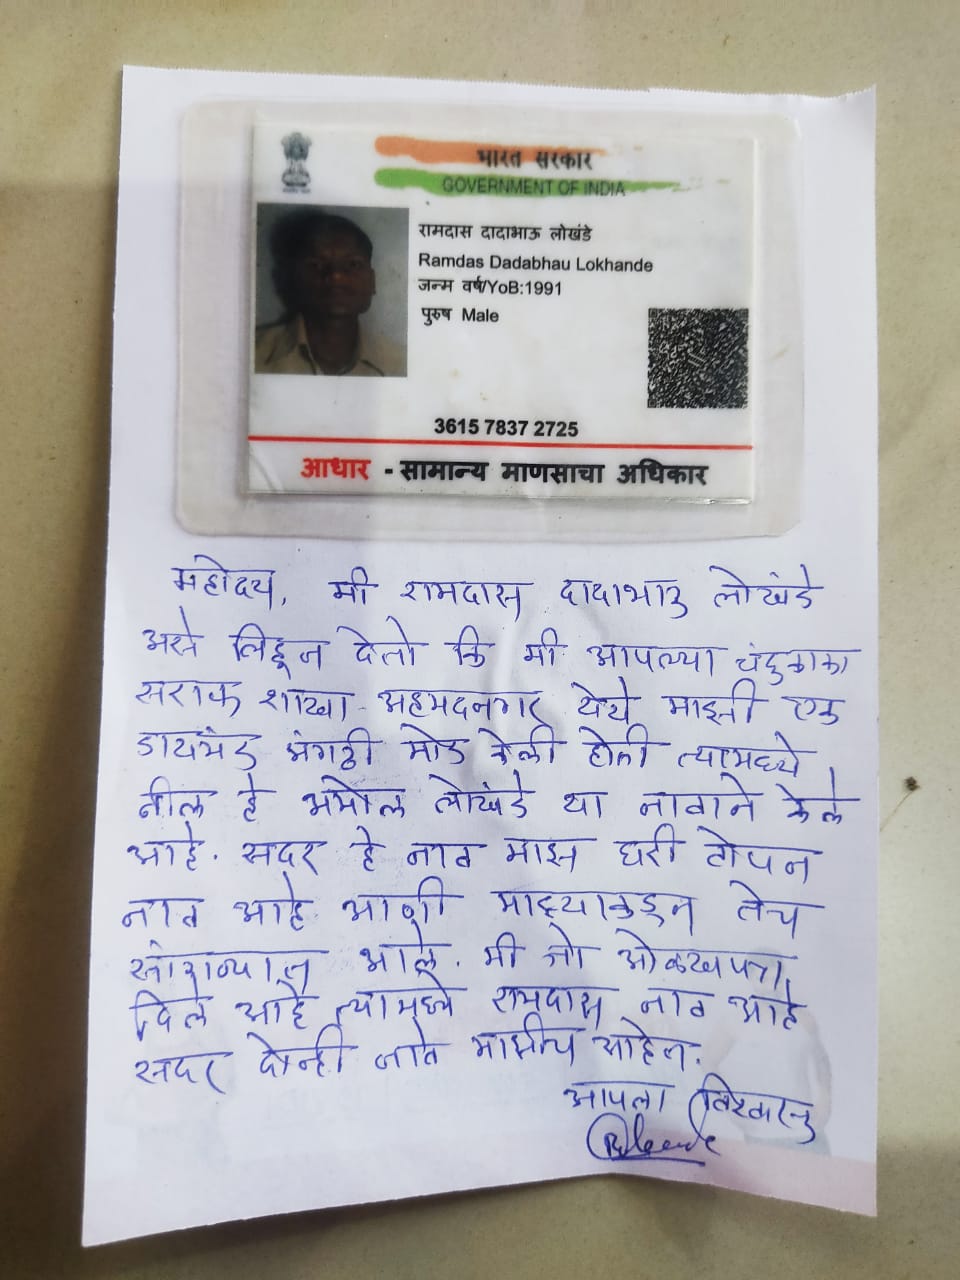 भारत सरकार
GOVERNMENT OF INDIA
रामदास दादाभाऊ लोखंडे
Ramdas Dadabhau Lokhande
जन्म वर्ष/YoB:1991
पुरुष Male
3615 7837 2725
आधार - सामान्य माणसाचा अधिकार
महोदय, मी रामदास दादाभाऊ लोखंडे
असे लिहून देतो कि मी आपल्या चंदुकाका
सराफ शाखा अहमदनगर येथे माझी एक
डायमंड अंगठी मोड केली होती त्यामध्ये
बील हे अमोल लोखंडे या नावाने केले
आहे. सदर हे नाव माझ घरी टोपन
नाव आहे आणी माझ्याकडून तेच
सांगण्यात आले. मी जो ओळखपत्र
दिले आहे त्यामध्ये रामदास नाव आहे
सदर दोन्ही नावे माझीच आहेत.
आपला विश्वासू